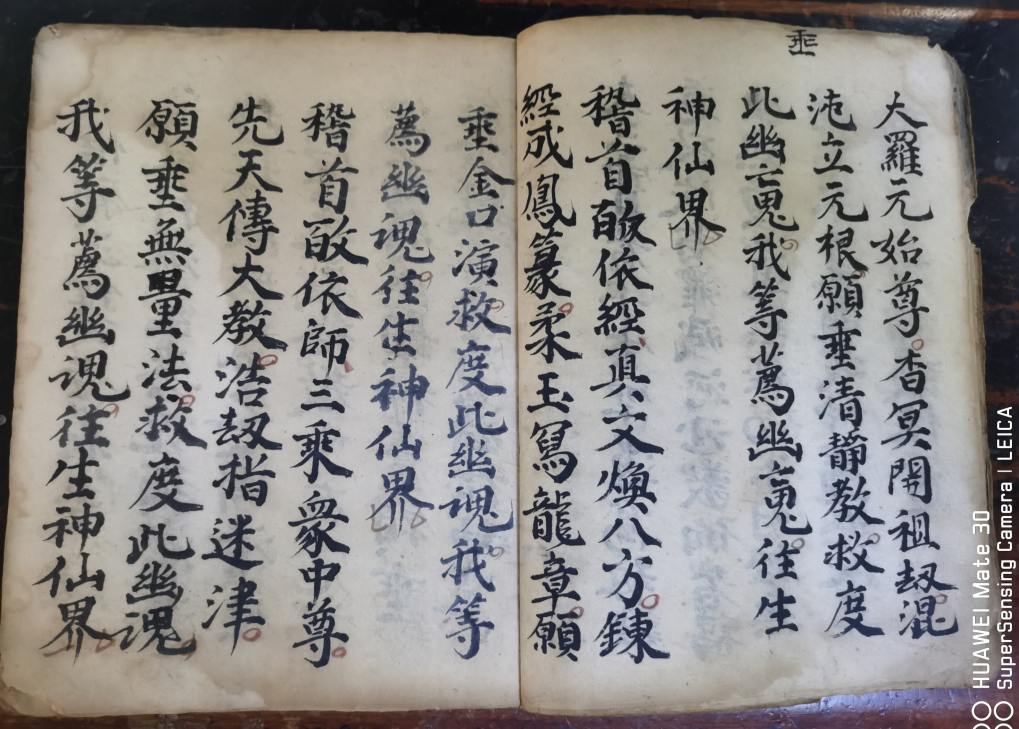 垂
大羅元始尊杳冥開祖劫混
沌立元根願垂清靜教救度
此幽䰟我等薦幽䰟往生
神仙界
稽首皈依經真文煥八方鍊
經成鳳篆柔玉冩龍章願
垂金口演救度此幽魂我等
薦幽魂往生神仙界
稽首皈依師三乘衆中尊
先天傳大教浩劫指迷津
願垂無量法救度此幽魂
我等薦幽魂往生神仙界
HUAWEI Mate 30
SuperSensing Camera | LEICA